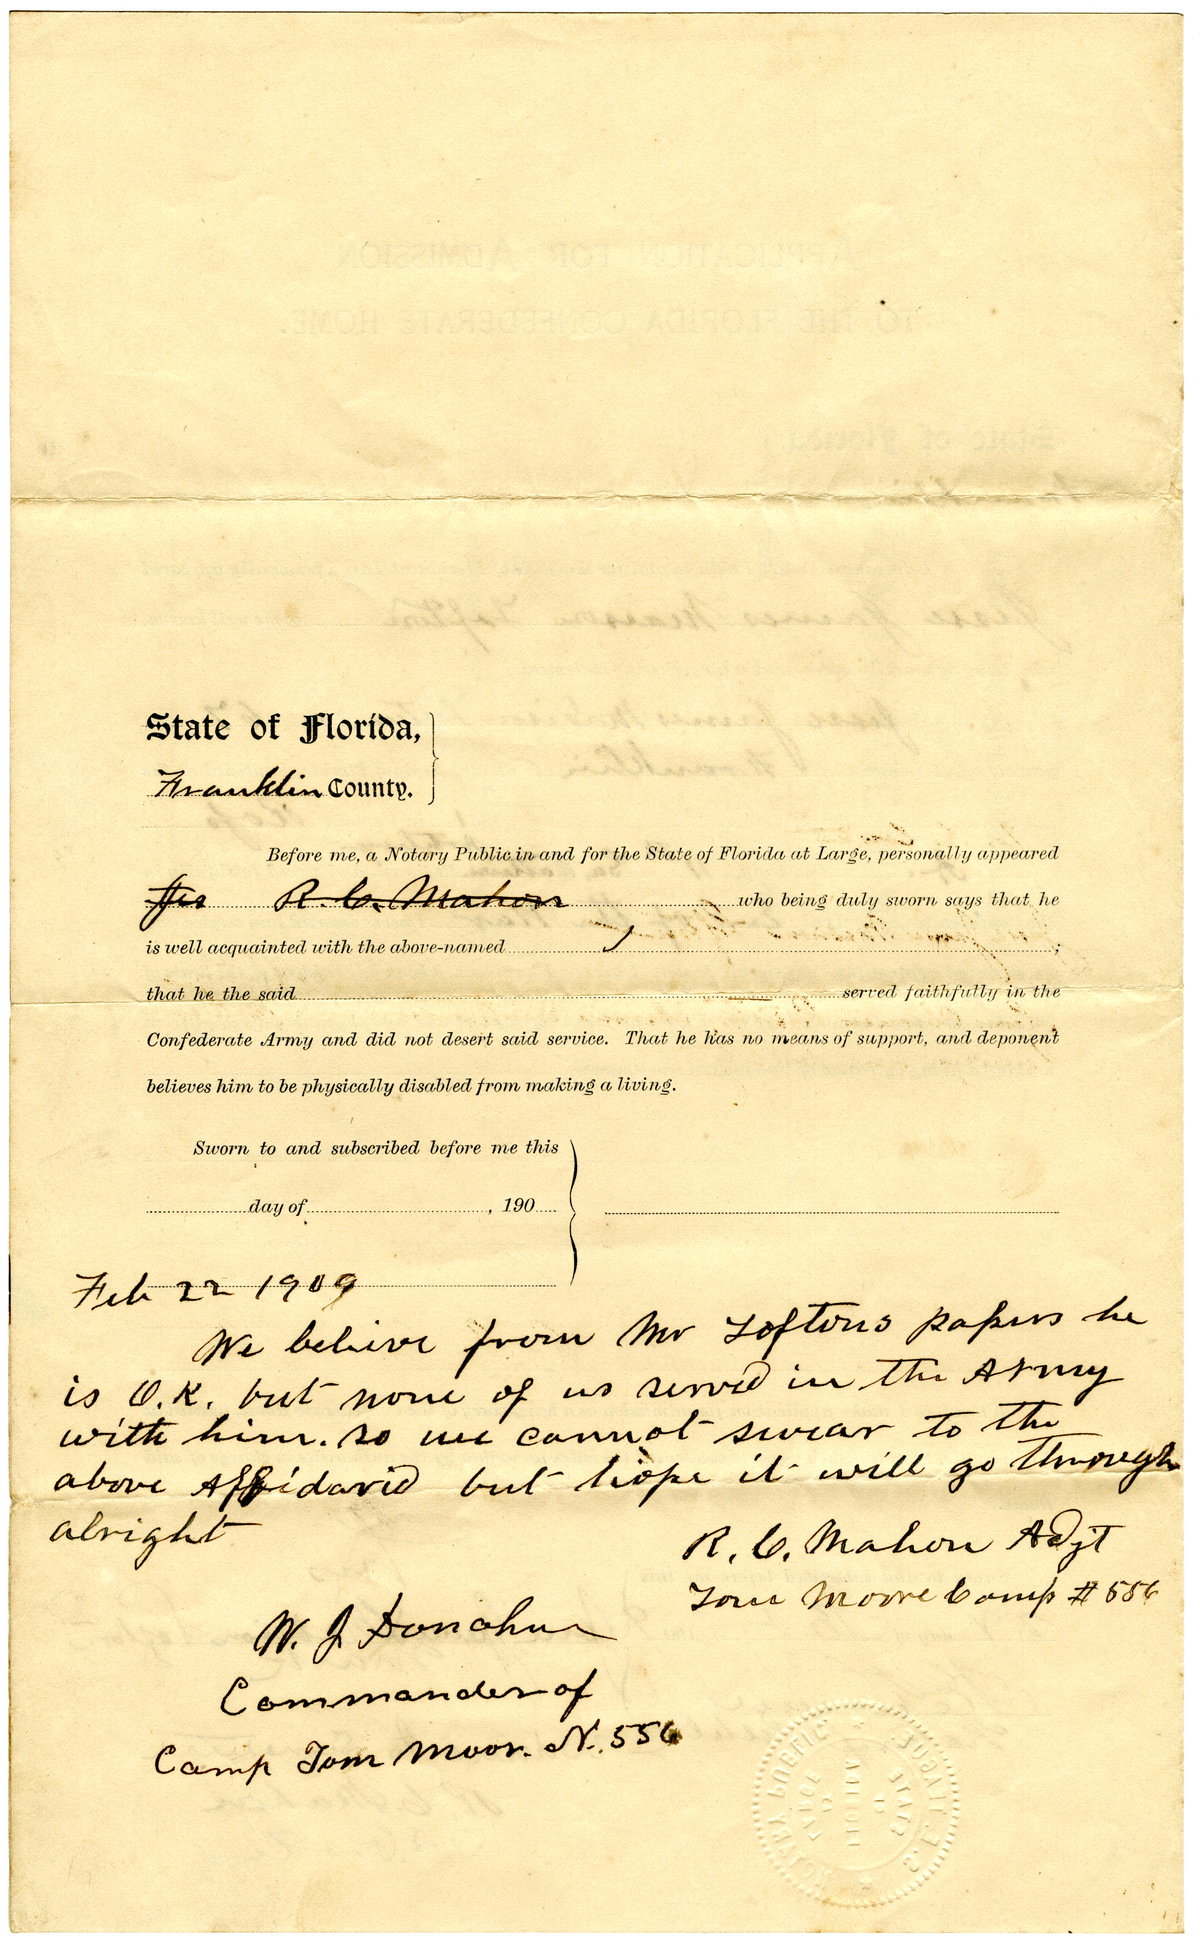 State of Florida,
Franklin County.
Before me, a Notary Public in and for the State of Florida at Large, personally appeared
R. C. Mahon who being duly sworn says that he
is well acquainted with the above-named ;
that he the said served faithfully in the
Confederate Army and did not desert said service. That he has no means of support, and deponent
believes him to be physically disabled from making a living.
Sworn to and subscribed before me this
day of , 190
Feb 22 1909
We believe from Mr Loftons papers he
is O.K. but none of us served in the Army
with him. so we cannot swear to the
above Affidavid but hope it will go through
alright
R. C. Mahon Adjt
Tom Moore Camp # 556
W. J. Donahue
Commander of
Camp Tom Moor. N. 556